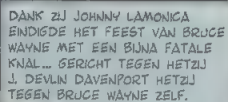 DANK ZIJ JOHNNY LAMONICA
EINDIGDE HET FEEST VAN BRUCE
WAYNE MET EEN BIJNA FATALE
KNAL... GERICHT TEGEN HETZIJ
J. DEVLIN DAVENPORT HETZIJ
TEGEN BRUCE WAYNE ZELF.